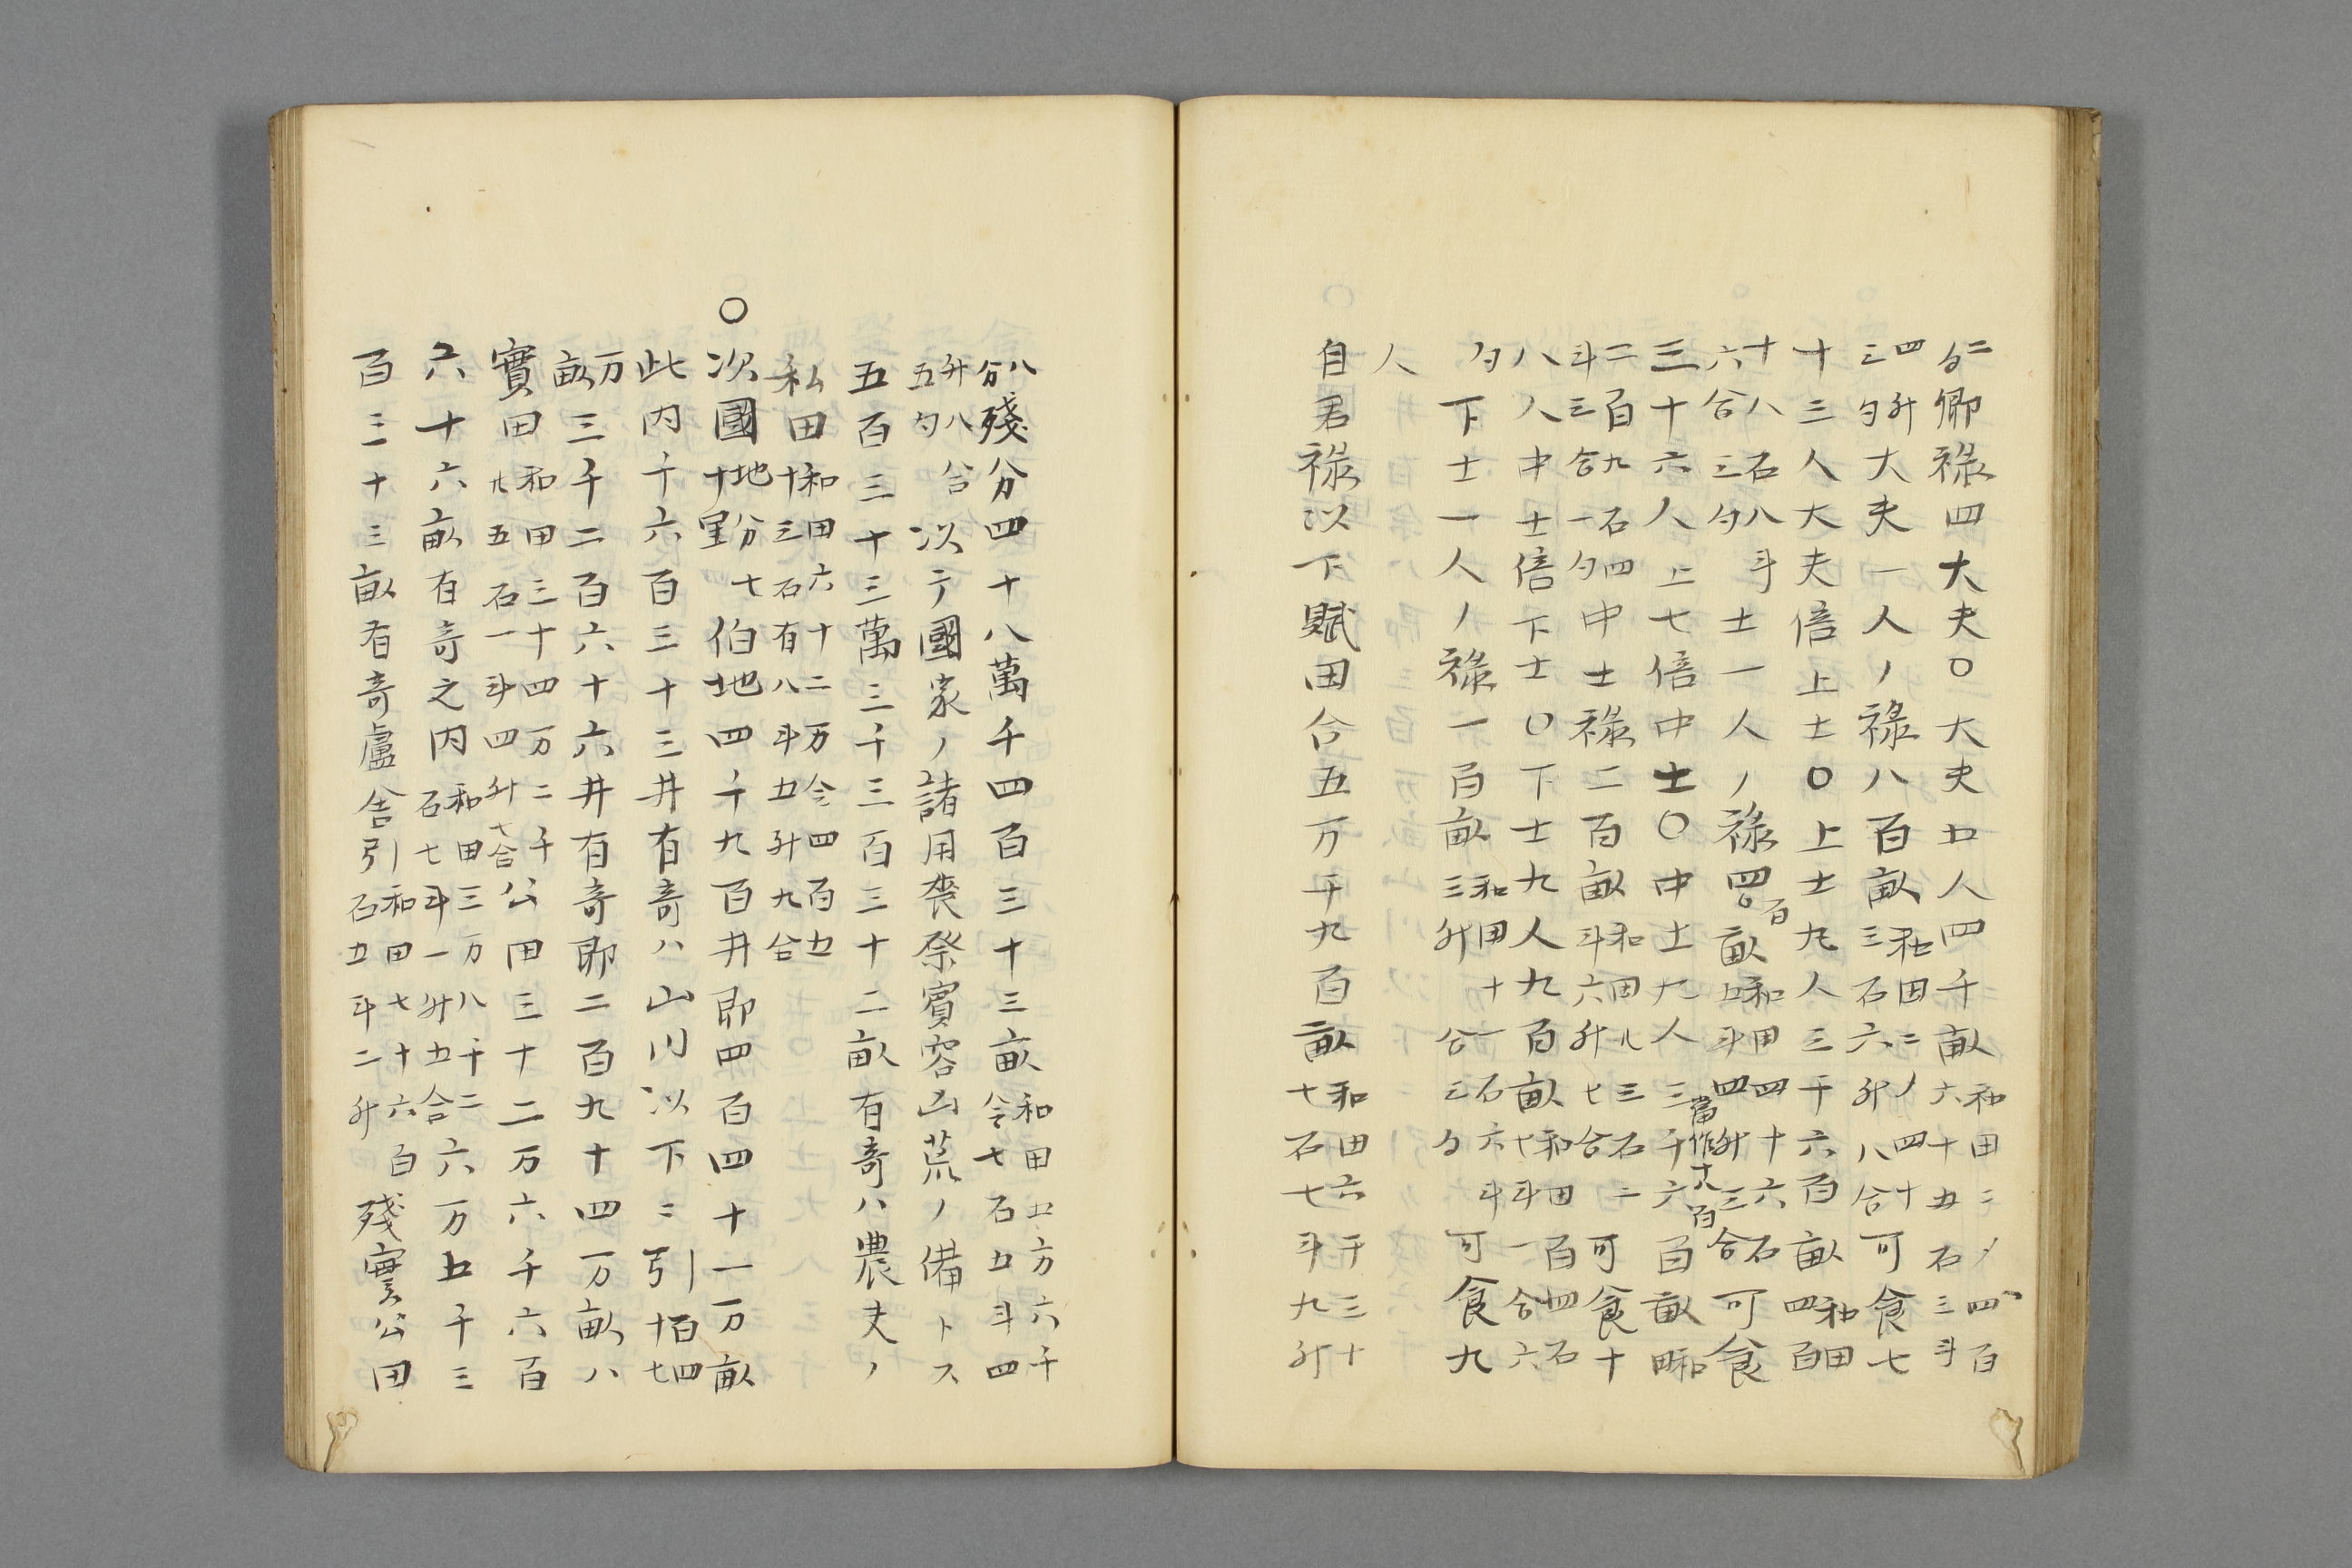 二勺卿祿四大夫〇大夫五人四千畝和田二ノ四百六十五石三斗
四升三勺大夫一人ノ祿八百畝和田二ノ四十三石六升八合可食七
十三人大夫倍上士〇上士九人三千六百畝和田四百
十八石八斗六合三勺士一人ノ祿四百畝和田四十六石五斗四升三合可食
三十六人上七倍中士〇中士九人三千六百畝和田
當作十八百
二百九石四斗三合一勺中士祿二百畝和田儿三石二斗六升七合可食十
八人中士倍下士〇下士九人九百畝和田一百四石七斗一合六
勺下士一人ノ祿一百畝和田十一石六斗三升合三勺可食九
人
自君祿以下賦田合五万千九百畝和田六千三十十石七斗九升
八合殘分四十八萬千四百三十三畝和田五万六千令七石五斗四
升八合五勺以テ國家ノ諸用喪祭賓容凶荒ノ備トス
五百三十三萬三千三百三十二畝有奇ハ農夫ノ
私田和田六十二万令四百五十三石有八斗五升九合
〇次國地方七十里伯地四千九百井即四百四十一万畝
此内千六百三十三井有奇ハ山川以下ニ引百四十七
万畝三千二百六十六井有奇即二百九十四万畝ハ
實田和田三十四万二千儿五石一斗四升七合公田三十二万六千六百
六十六畝有奇之内和田三万八千二石七斗一升五合六万五千三
百三十三畝有奇盧舎引和田七十六百石五斗二升殘實公田